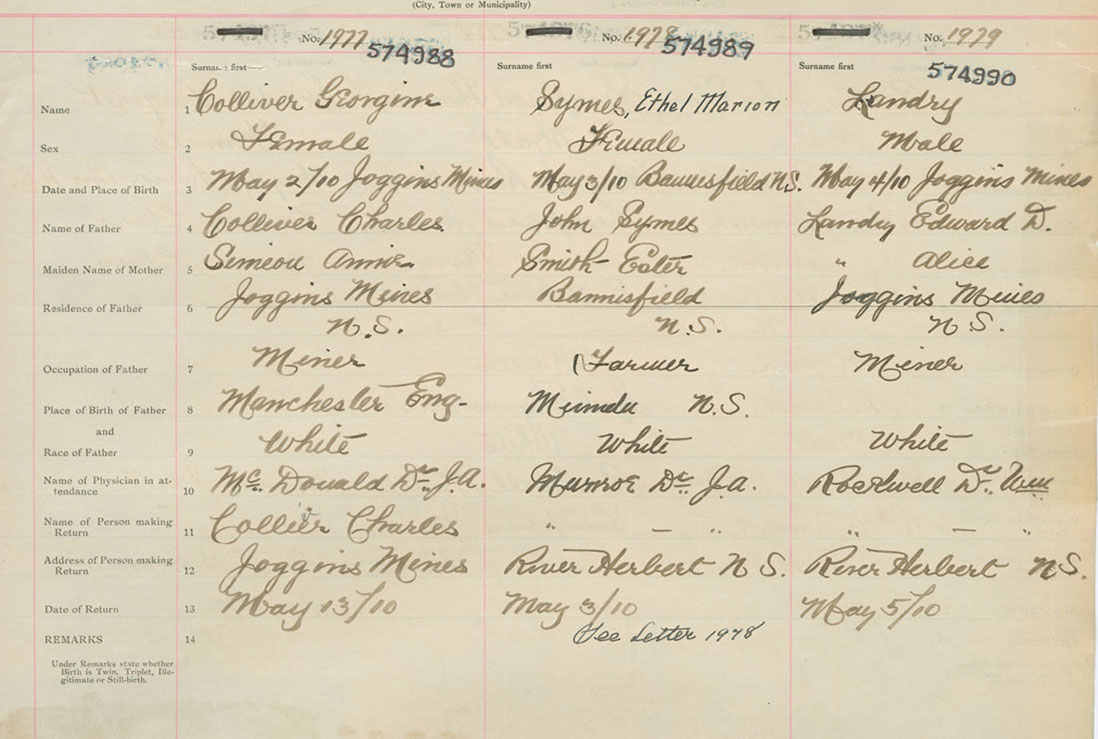 (City, Town or Municipality)
No. 1977 574988 No. 1978 574989 No. 1979 574990
Surname first Surname first Surname first
Name 1 Colliver Georgine Symes, Ethel Marion Landry
Sex 2 Female Female Male
Date and Place of Birth 3 May 2/10 Joggins Mines May 3/10 Bannesfield N.S. May 4/10 Joggins Mines
Name of Father 4 Colliver Charles John Symes Landry Edward D.
Maiden Name of Mother 5 Simeon Annie Smith Ester " Alice
Residence of Father 6 Joggins Mines Bannisfield Joggins Mines
N.S. N.S. N.S.
Occupation of Father 7 Miner Farmer Miner
Place of Birth of Father 8 Manchester Eng- N.S.
and
Race of Father 9 White White White
Name of Physician in at- 10 Mc. Donald Dr. J.A. Munroe Dr. J.A. Rockwell Dr. Wm
tendance
Name of Person making 11 Collier Charles " — " " — "
Return
Address of Person making 12 Joggins Mines River Herbert N S. River Herbert N.S.
Return
Date of Return 13 May 13/10 May 3/10 May 5/10
REMARKS 14 See Letter 1978
Under Remarks state whether
Birth is Twin, Triplet, Ille-
gitimate or Still-birth.